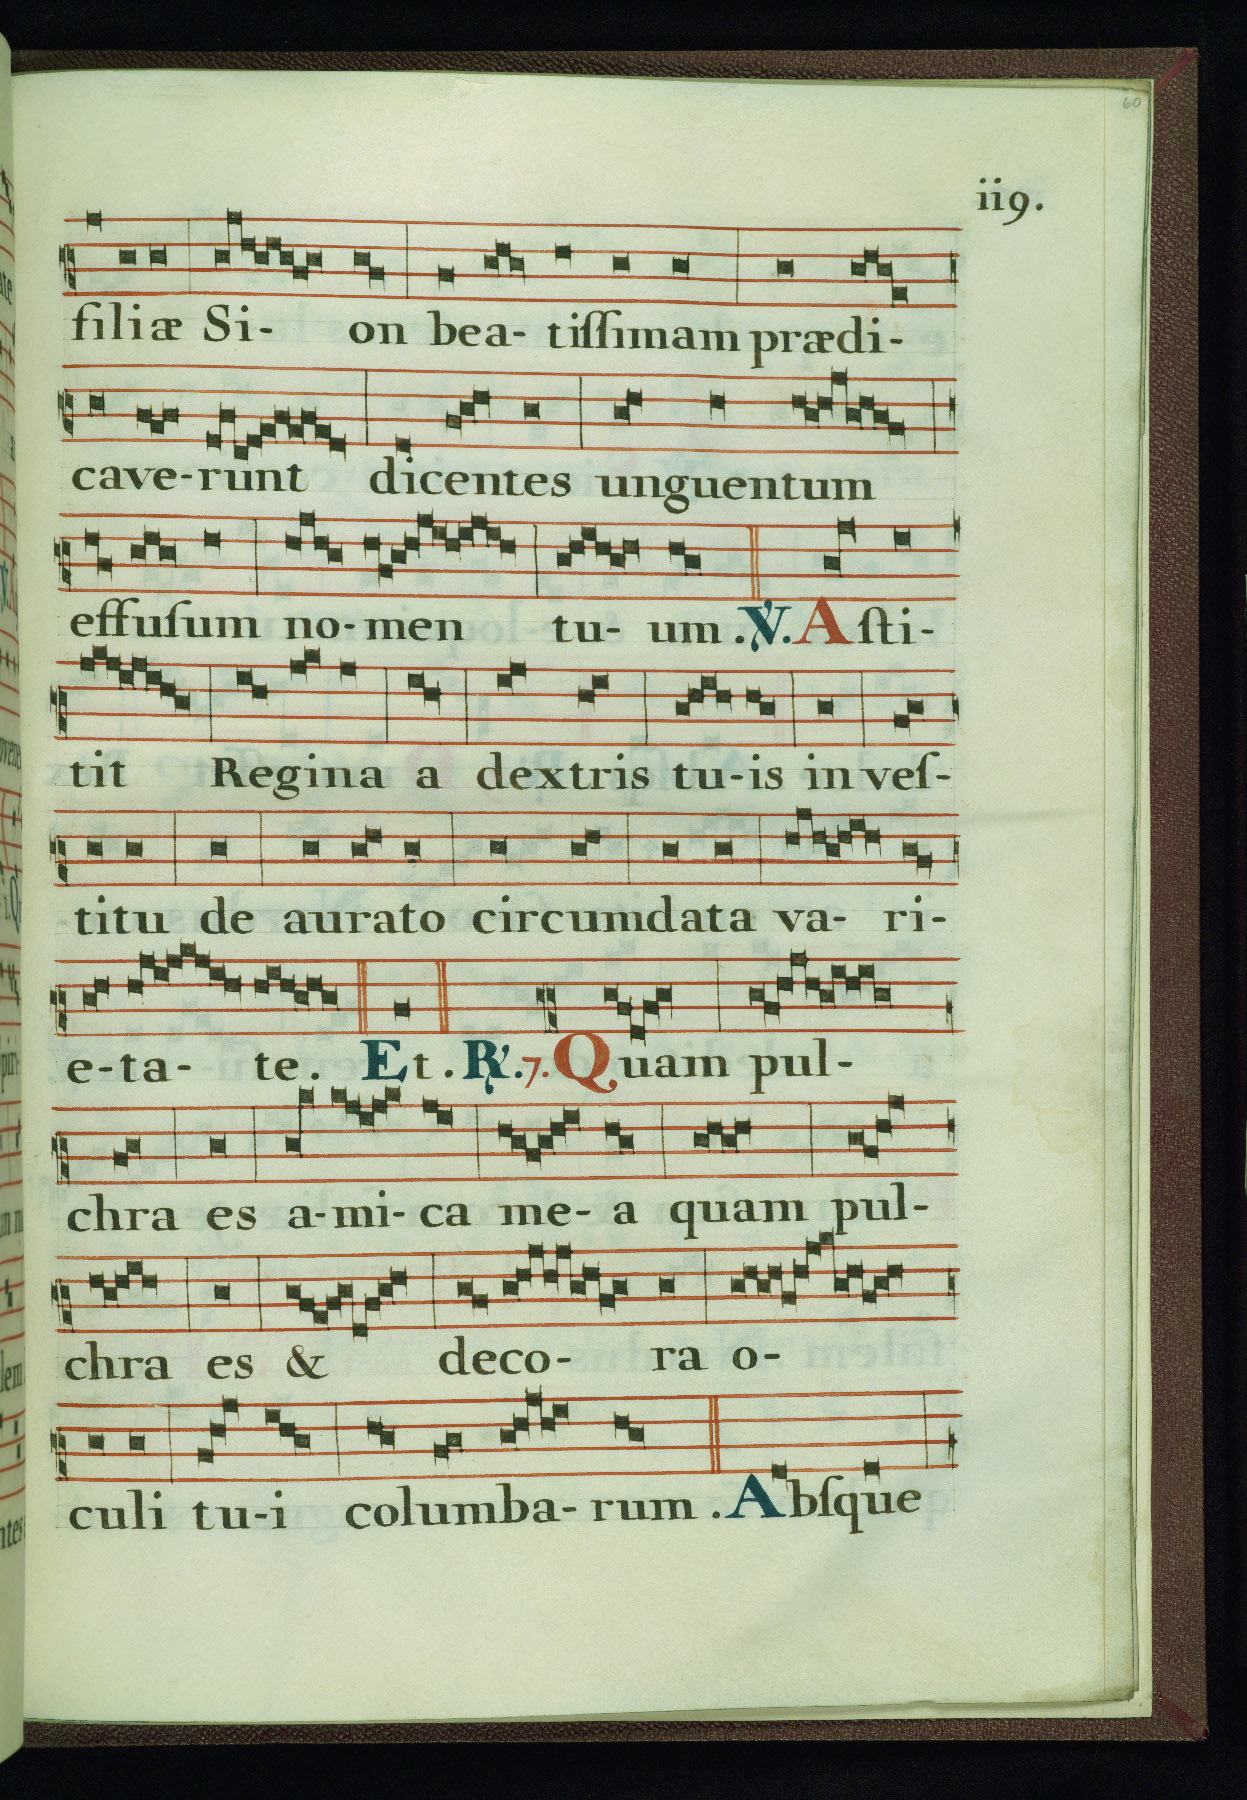 60
iig.
filiæ Si- on bea- tiſſimam prædi-
cave-runt dicentes unguentum
effuſum no-men tu- um. ℣. Aſti-
tit Regina a dextris tu-is in veſ-
titu de aurato circumdata va- ri-
e-ta- te. Et. ℟. 7. Quam pul-
chra es a-mi-ca me- a quam pul-
chra es & deco- ra o-
culi tu-i columba-rum. Abſque